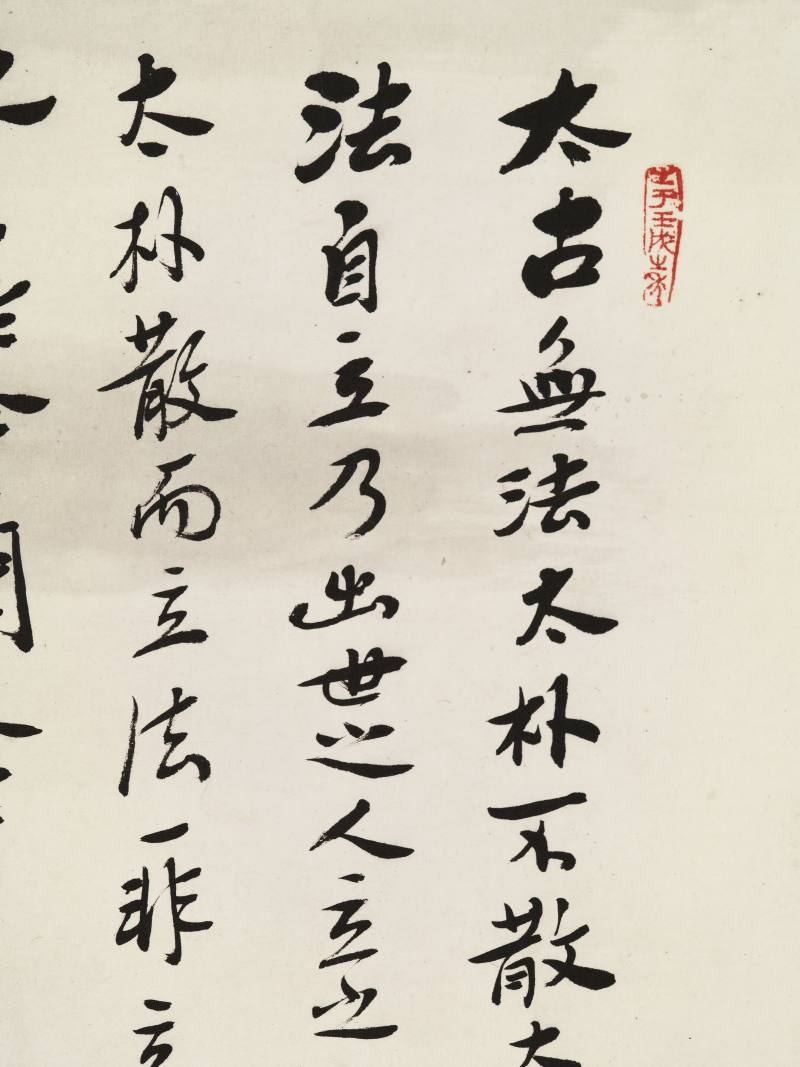 太古無法太朴不散太
法自立乃出世之人立之
太朴散而立法一非立